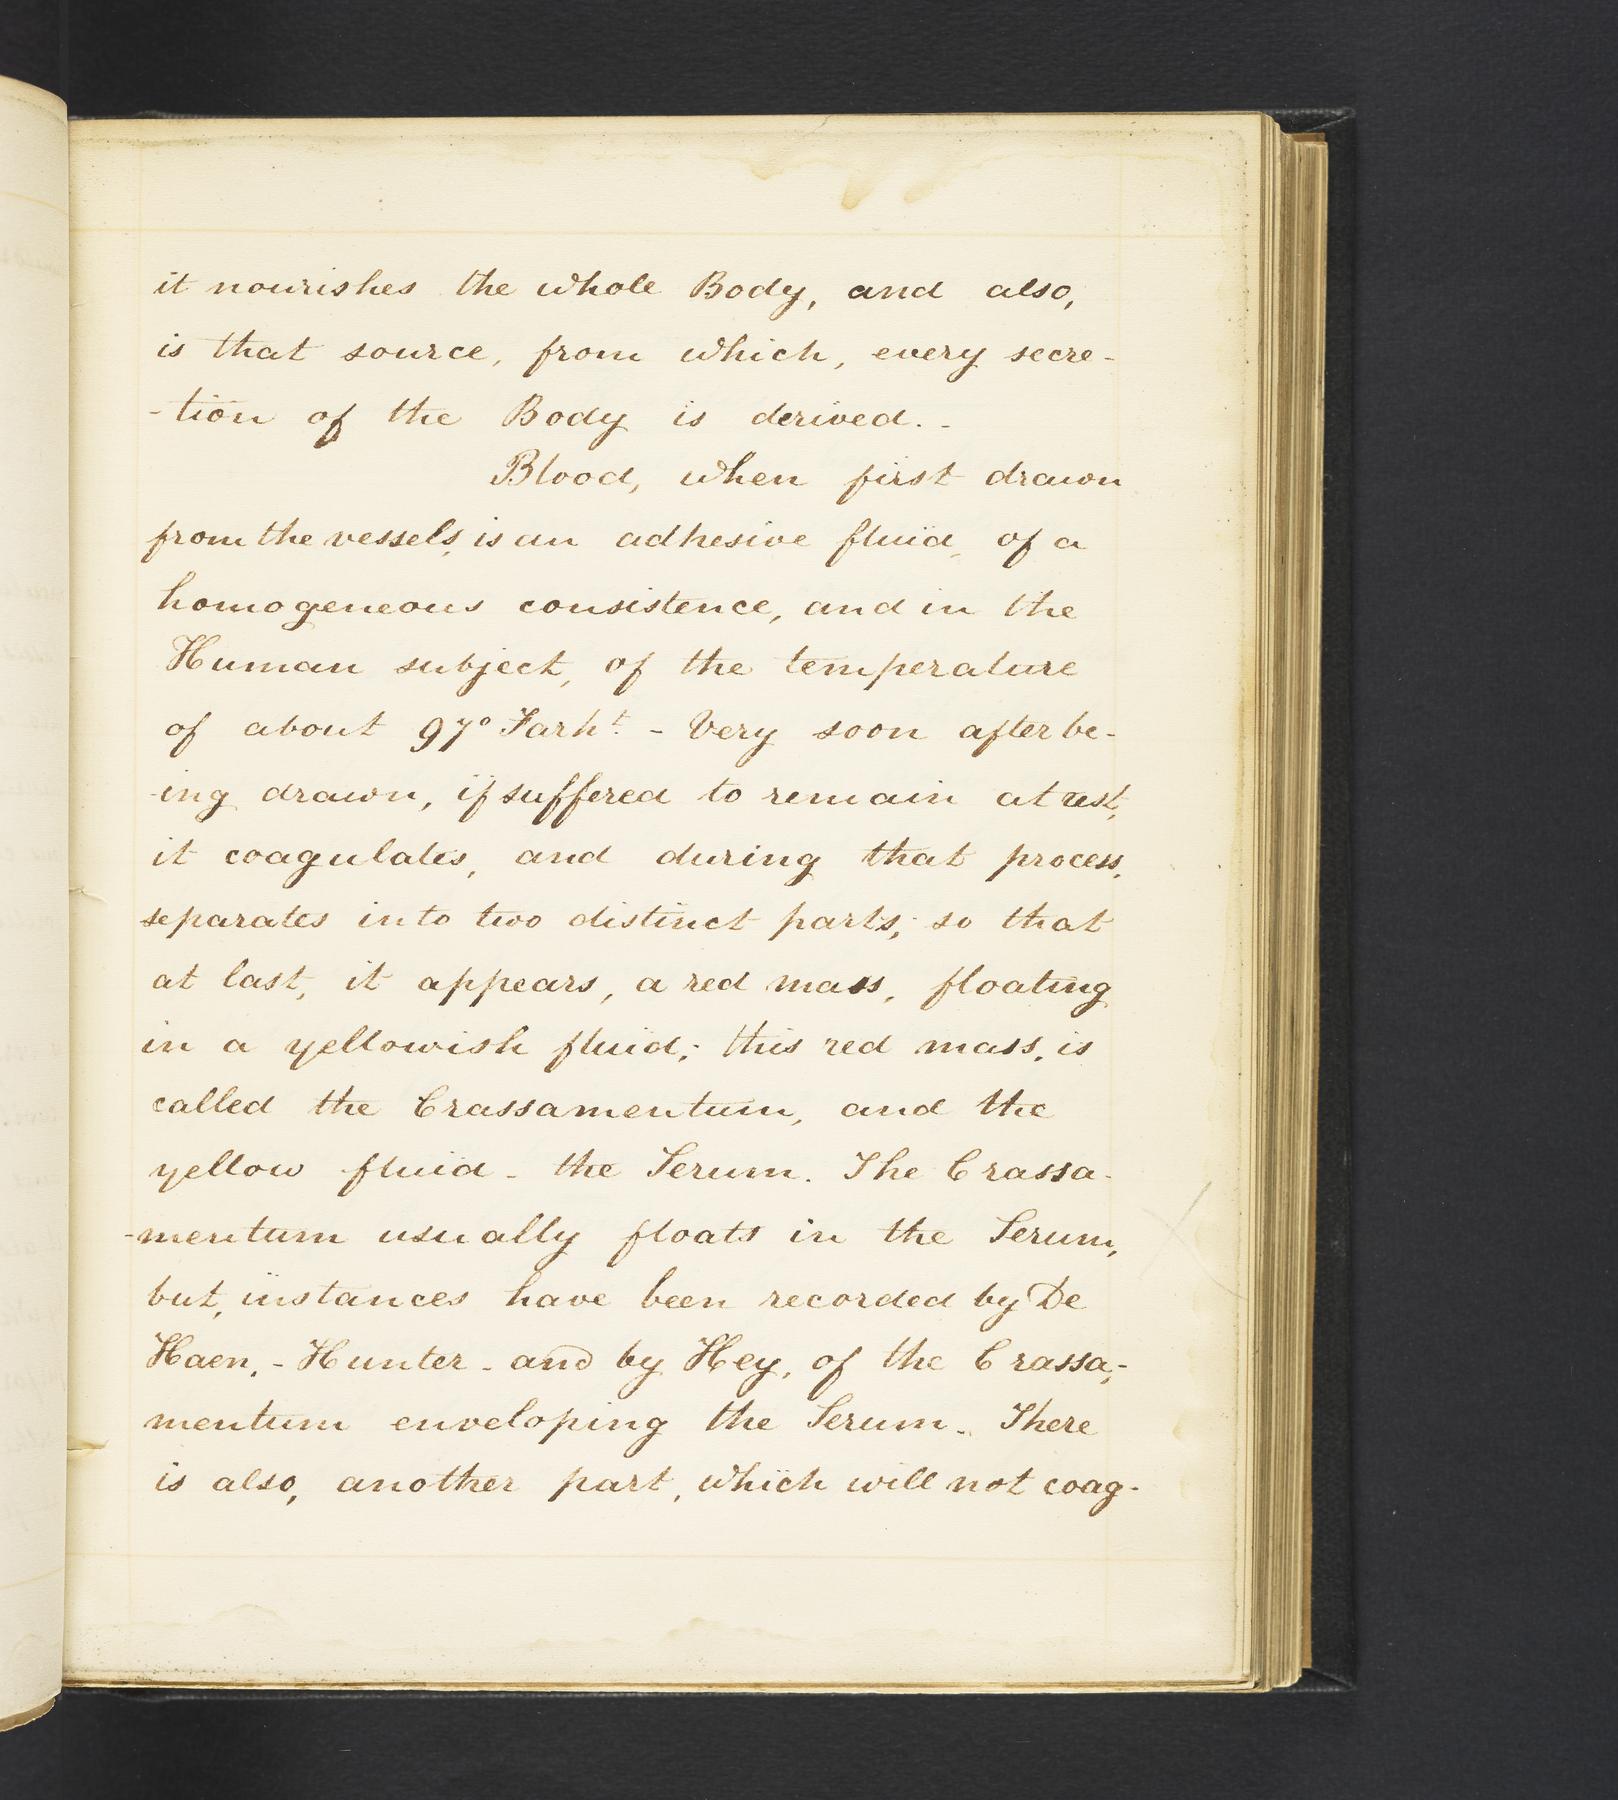 it nourishes the whole Body, and also,
is that source, from which, every secre-
-tion of the Body is derived. -
Blood, when first drawn
from the vessels, is an adhesive fluid, of a
homogeneous consistence, and in the
Human subject, of the temperature
of about 97° Farht. - Very soon after be-
-ing drawn, if suffered to remain at rest,
it coagulates, and during that process,
separates into two distinct parts; so that
at last, it appears, a red mass, floating
in a yellowish fluid; this red mass, is
called the Crassamentum, and the
yellow fluid - the Serum. The Crassa-
-mentum usually floats in the Serum,
but, instances have been recorded by De
Haen, - Hunter - and by Hey, of the Crassa-
mentum enveloping the Serum. There
is also, another part, which will not coag-